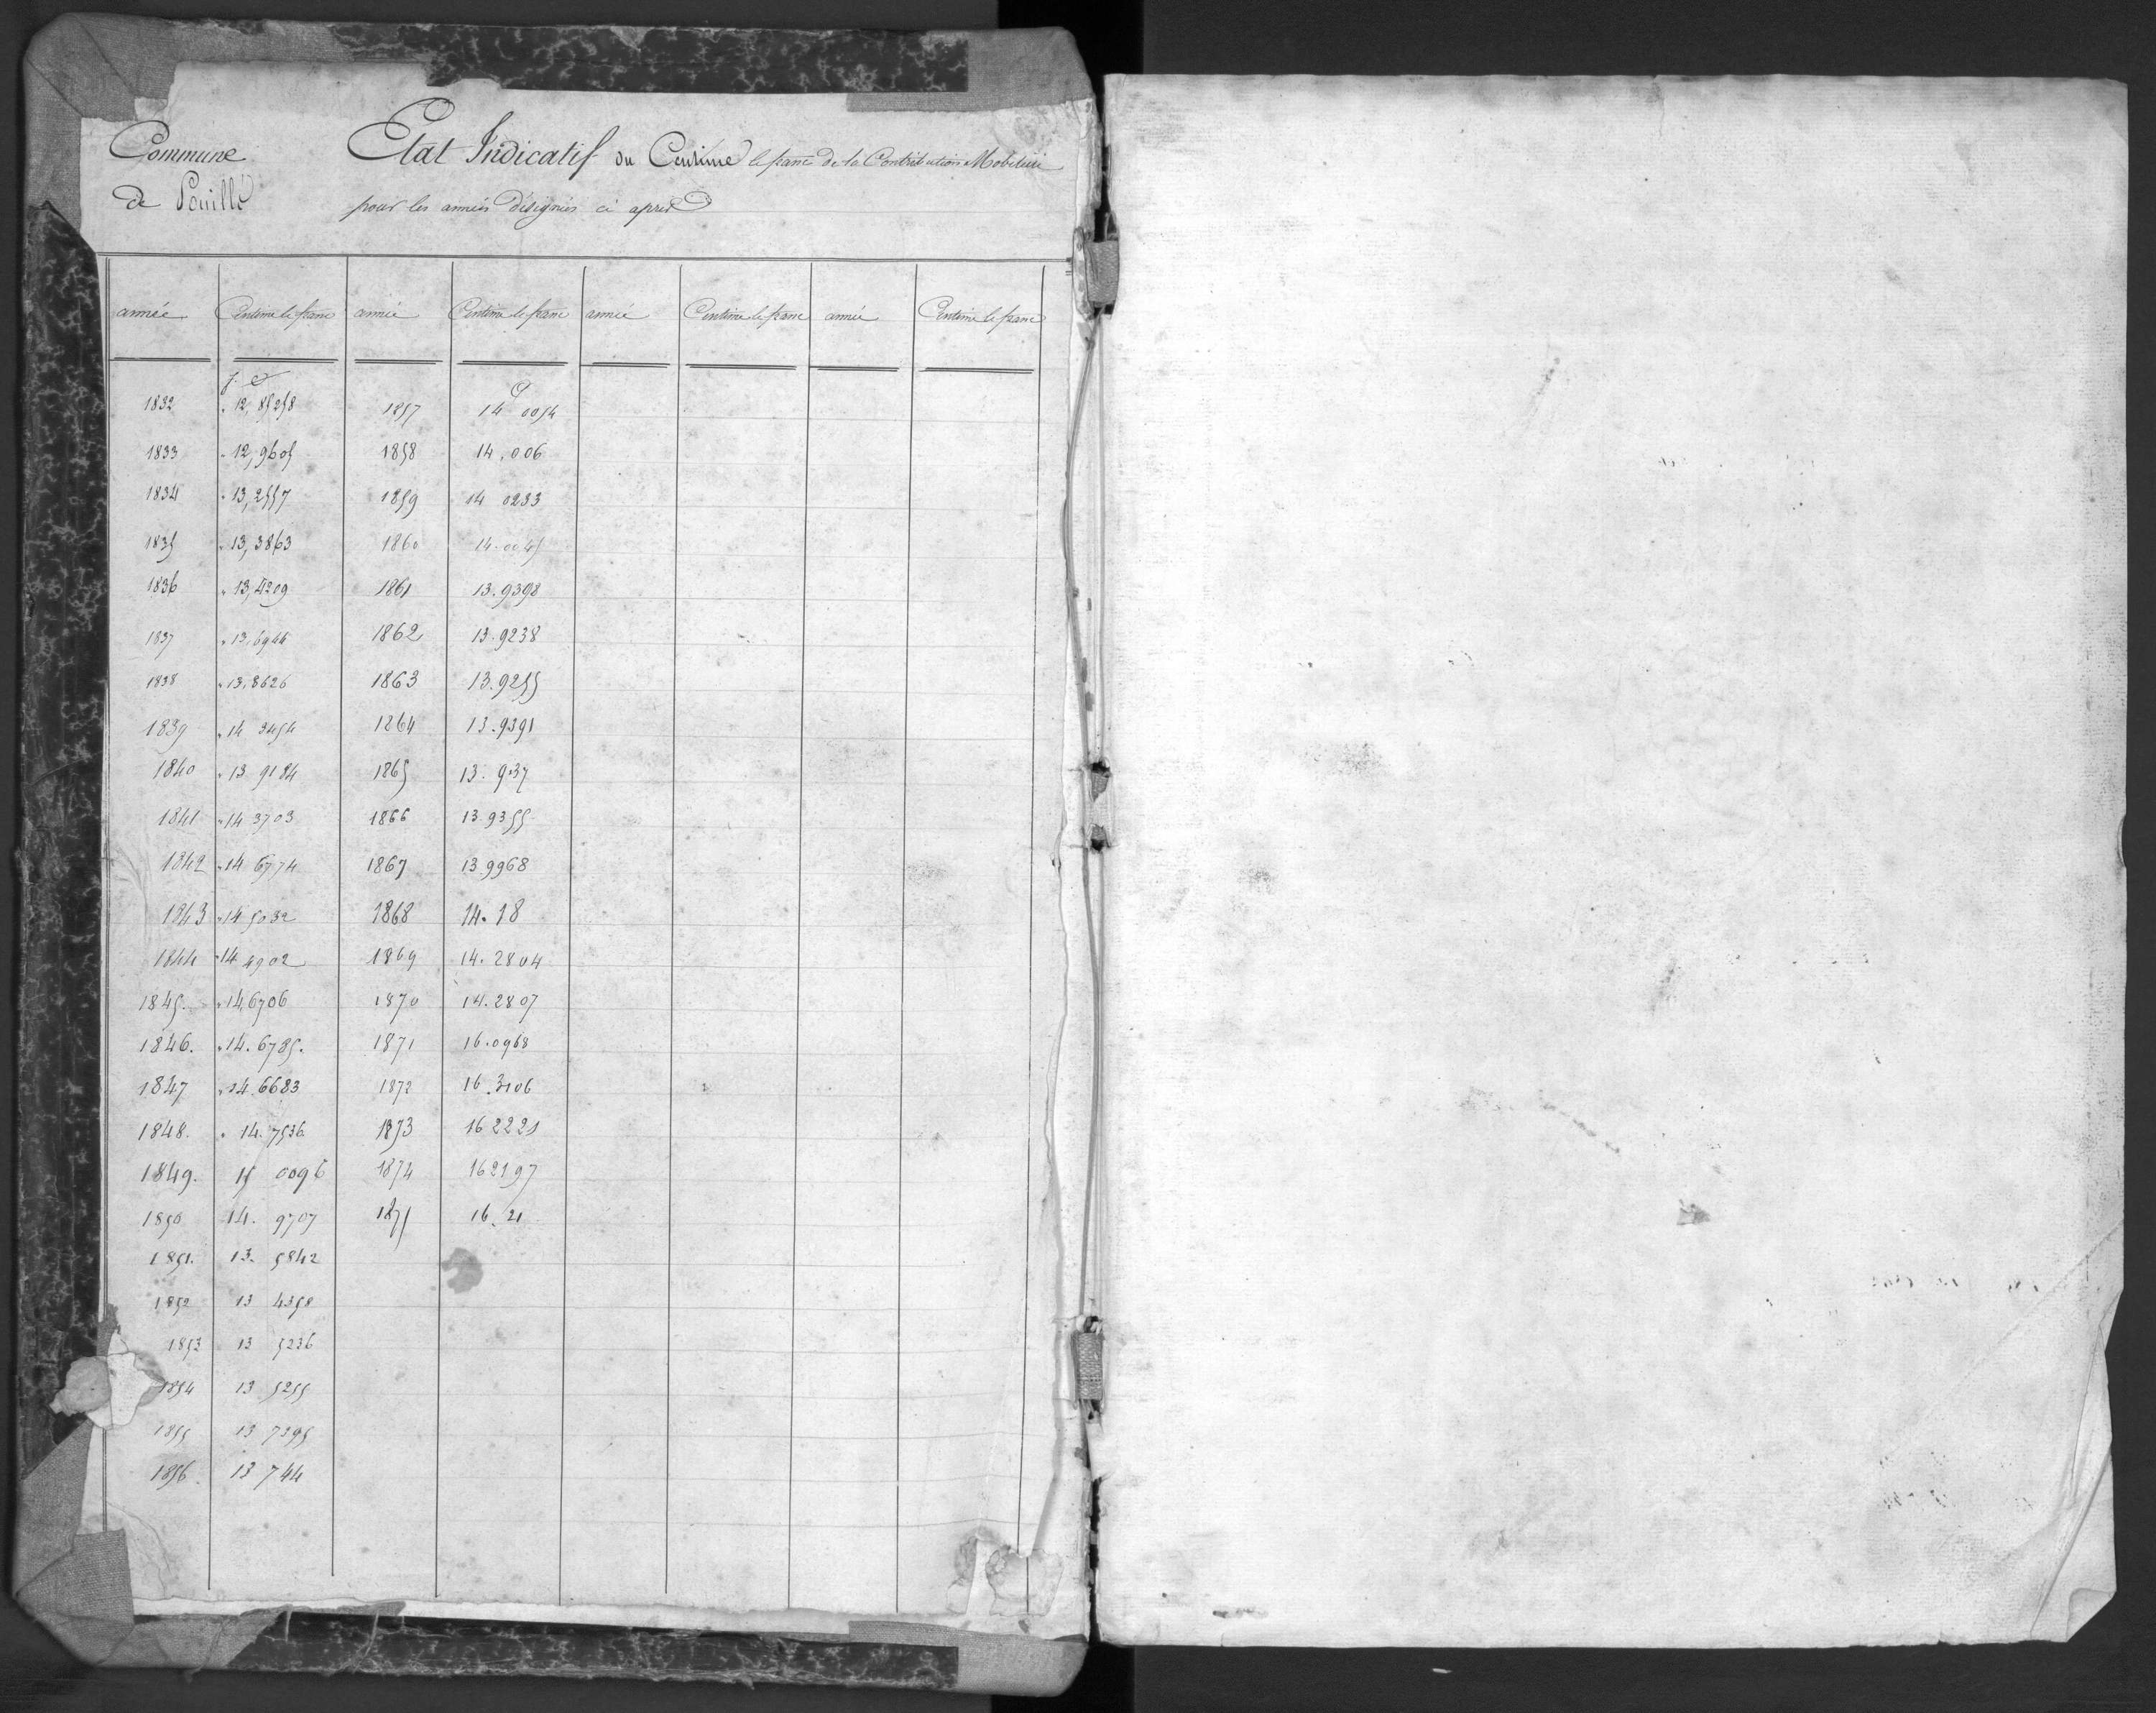 Commune
de Pouillé
Etat Indicatif du Centime le franc de la Contribution Mobilière
pour les années désignées ci après
année Centime le franc année Centime le franc année Centime le franc année Centime le franc
f. c c
1832 " 12,85258 1857 14 0054
1833 " 12,9605 1858 14,006
1834 " 13,2557 1859 14 0233
1835 " 13,3863 1860 14.0045
1836 " 13,4209 1861 13.9398
1837 " 13,6944 1862 13.9238
1838 " 13,8626 1863 13.9255
1839 " 14 3454 1864 13.9391
1840 " 13 9184 1865 13.937
1841 " 14 3703 1866 13.9355
1842 " 14 6774 1867 13.9968
1843 " 14 5032 1868 14.18
1844 " 14 4902 1869 14.2804
1845. " 14,6706 1870 14.2807
1846. " 14.6785. 1871 16.0968
1847 " 14.6683 1872 16.3106
1848. " 14.7536 1873 16 2221
1849. 15 0096 1874 16 2197
1850 14. 9707 1875 16.21
1851. 13. 5842
1852 13 4358
1853 13 5236
1854 13 5255
1855 13 7295
1856 13 744